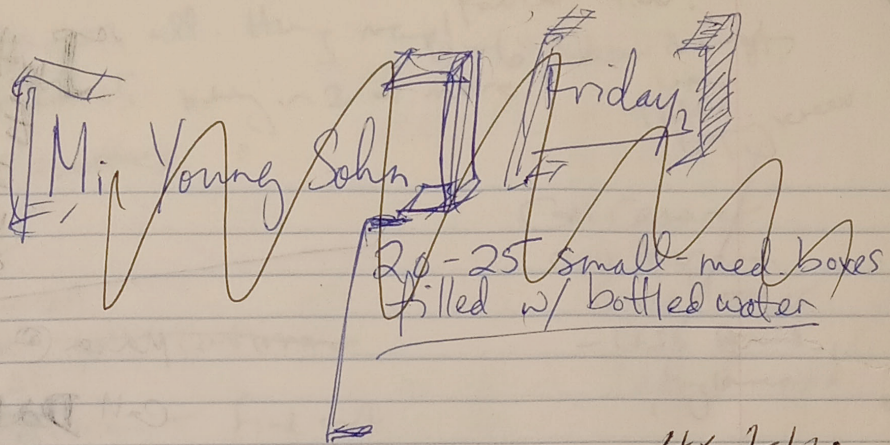 Mi Young Sohn
Friday?
20-25 small-med. boxes
filled w/ bottled water